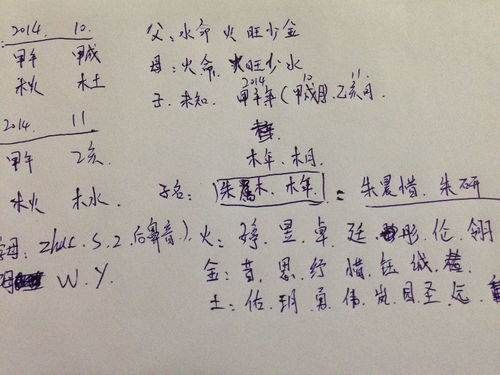 2014. 10.
甲午 甲戌
木火 木土
2014. 11
甲午 乙亥
木火 木水
父: 水命 火旺少金
母: 火命. 火旺少水
子. 未知. 2014 甲午年 (10 甲戌月. 11. 乙亥月.
木年. 木月
子名: 朱属木. 木年. = 朱晨惜. 朱研
字母: zhcs. s. z. 后鼻音)
W. Y.
火: 昱. 卓. 廷. 彤. 伦. 翎
金: 思. 纾. 惜. 钰. 城.
土: 佑. 玥. 勇. 伟. 岚. 圣. 远.